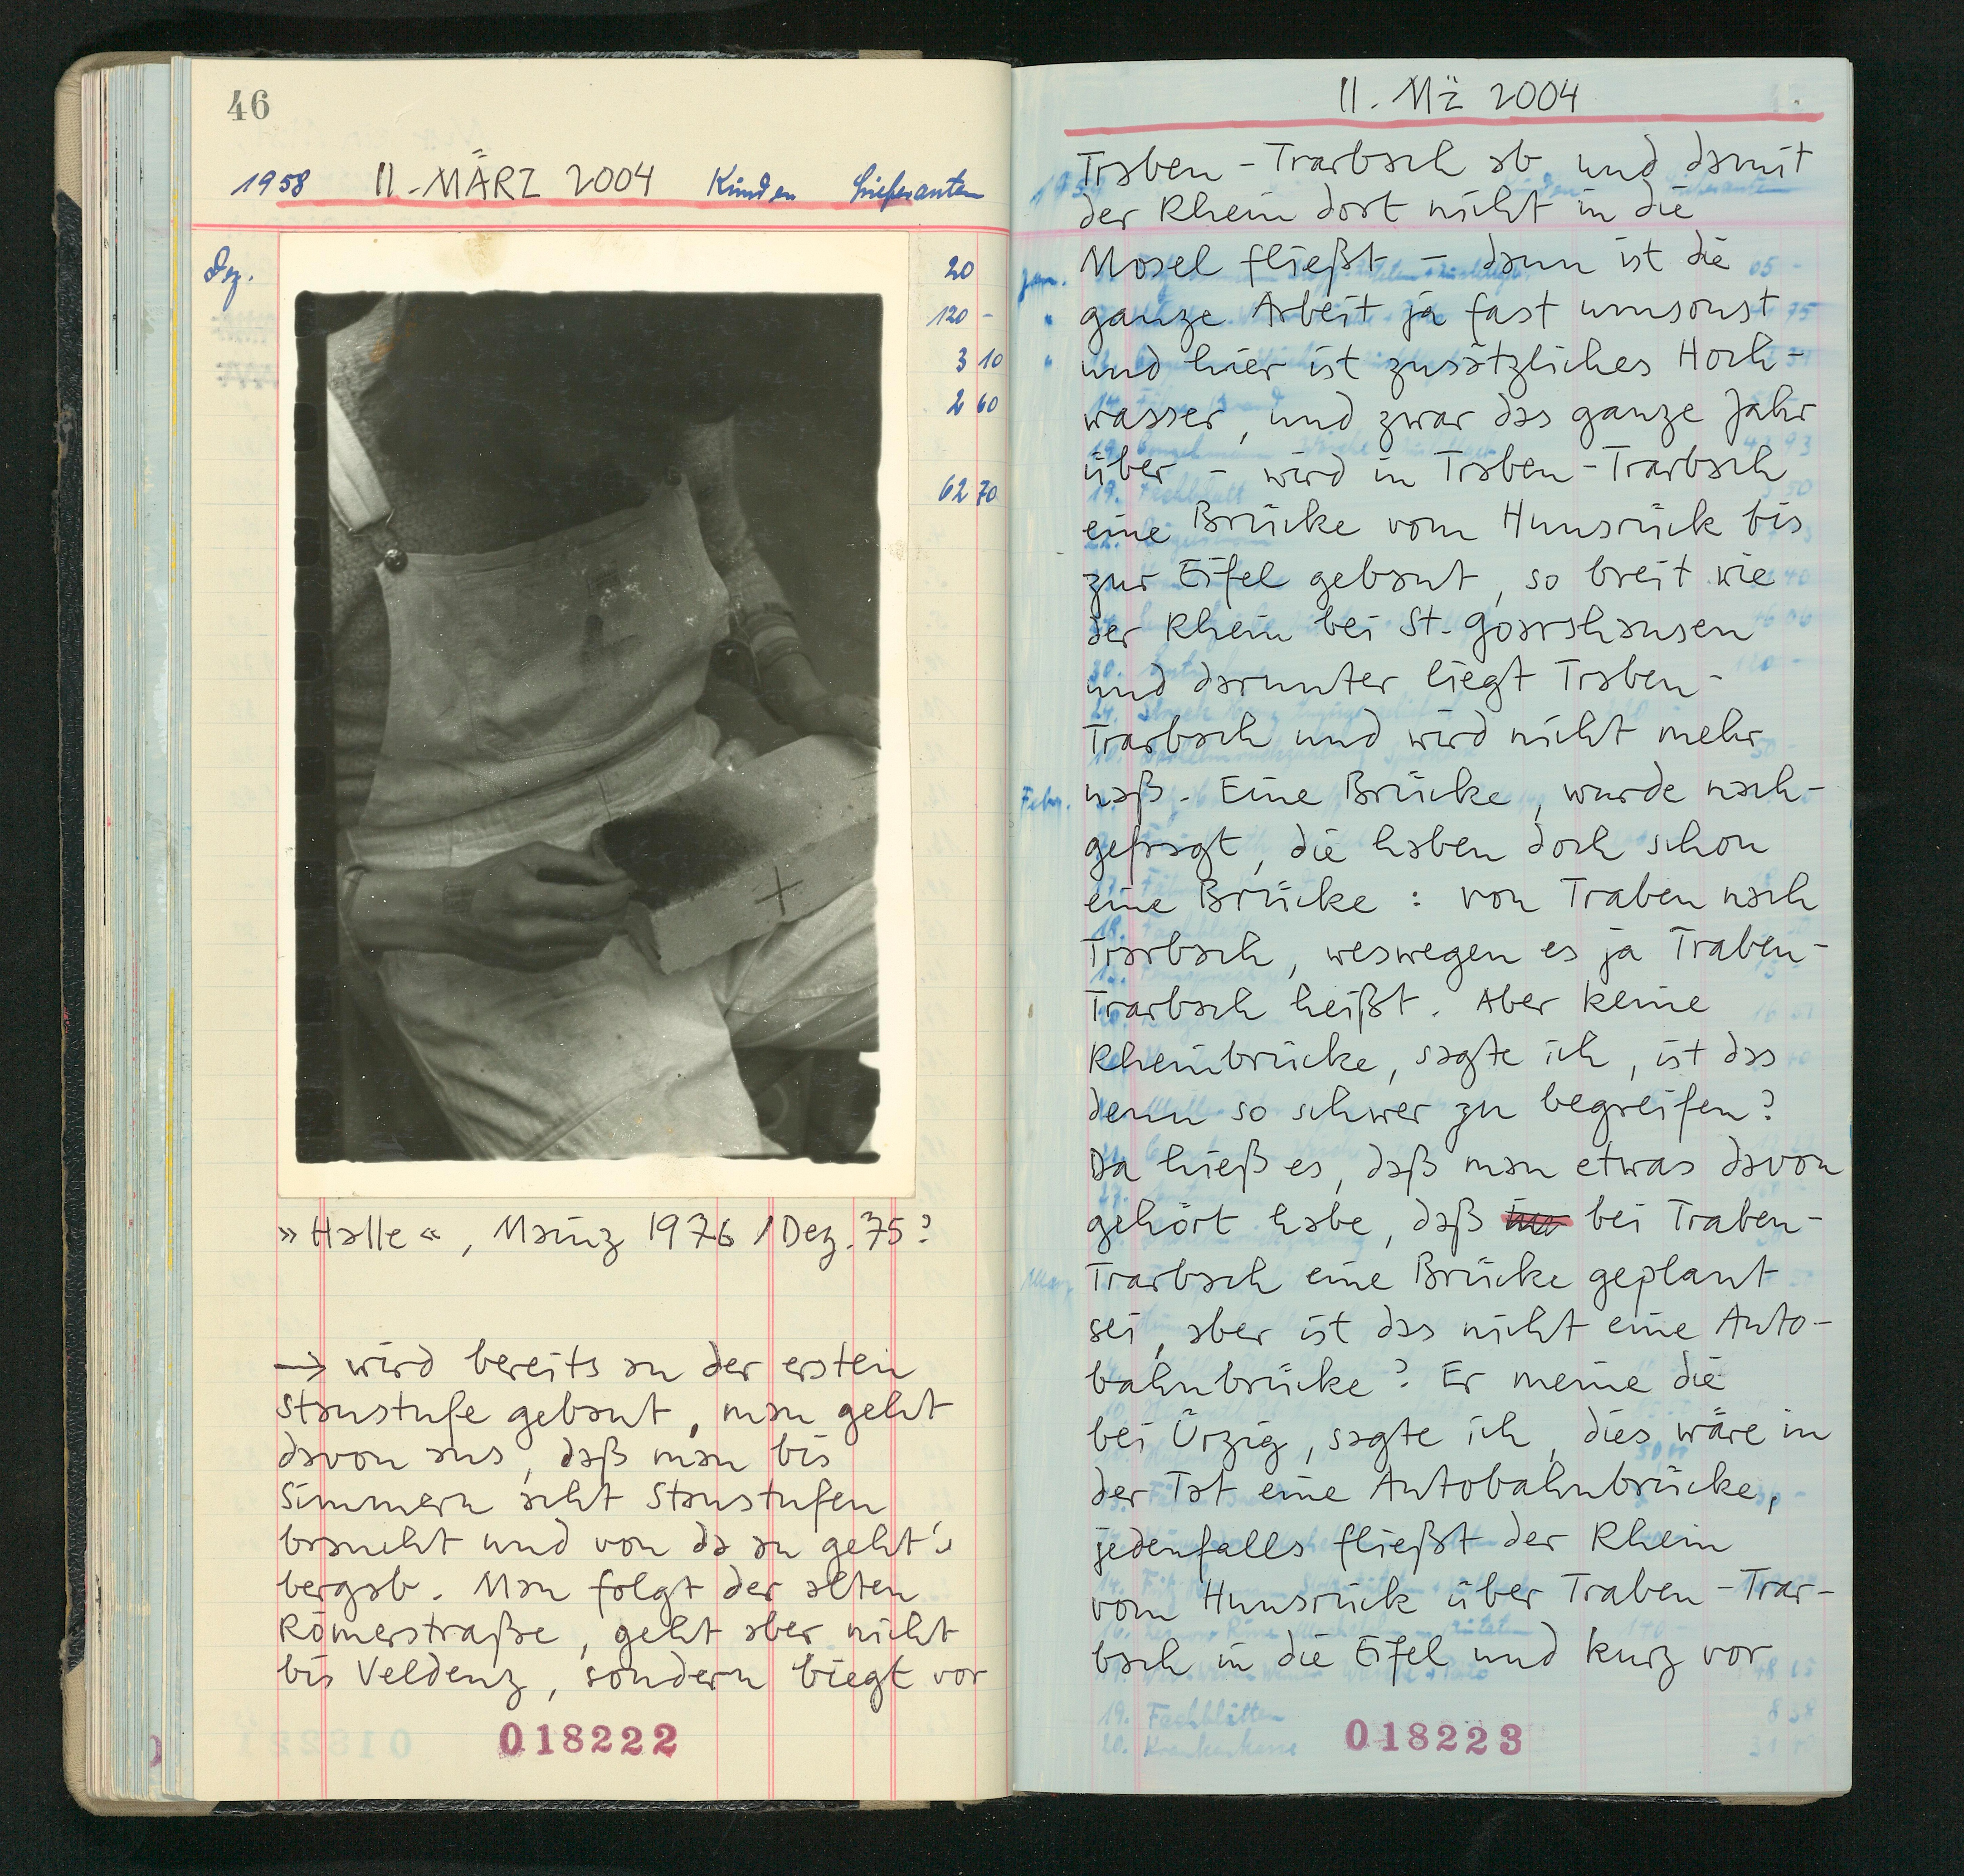 46
1958 11. MÄRZ 2004 Kunden Lieferanten
Dez.
20
120 -
3 10
2 60
62 70
»Halle«, Mainz 1976 / Dez. 75?
→ wird bereits an der ersten
Staustufe gebaut, man geht
davon aus, daß man bis
Simmern acht Staustufen
braucht und von da an geht's
bergab. Man folgt der alten
Römerstraße, geht aber nicht
bis Veldenz, sondern biegt vor
018222
11. Mz 2004
Traben-Trarbach ab und damit
der Rhein dort nicht in die
Mosel fließt – dann ist die
ganze Arbeit ja fast umsonst
und hier ist zusätzliches Hoch-
wasser, und zwar das ganze Jahr
über – wird in Traben-Trarbach
eine Brücke vom Hunsrück bis
zur Eifel gebaut, so breit wie
der Rhein bei St. Goarshausen
und darunter liegt Traben-
Trarbach und wird nicht mehr
naß. Eine Brücke, wurde nach-
gefragt, die haben doch schon
eine Brücke: von Traben nach
Trarbach, weswegen es ja Traben-
Trarbach heißt. Aber keine
Rheinbrücke, sagte ich, ist das
denn so schwer zu begreifen?
Da hieß es, daß man etwas davon
gehört habe, daß bei Traben-
Trarbach eine Brücke geplant
sei, aber ist das nicht eine Auto-
bahnbrücke? Er meine die
bei Ürzig, sagte ich, dies wäre in
der Tat eine Autobahnbrücke,
jedenfalls fließt der Rhein
vom Hunsrück über Traben-Trar-
bach in die Eifel und kurz vor
19. Fachblätter
20. Krankenkasse
018223